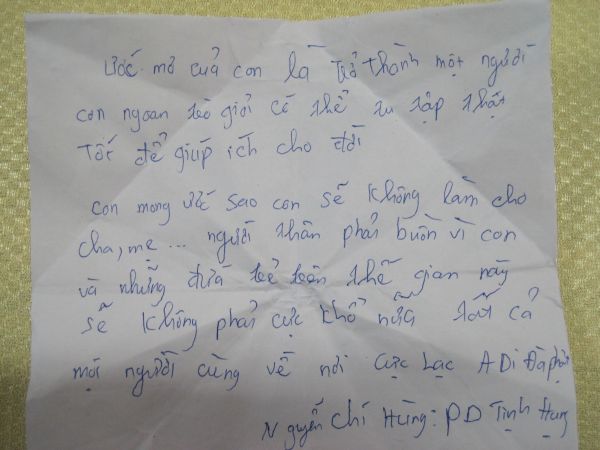 Ước mơ của con là trở thành một người
con ngoan trò giỏi có thể tu tập thật
Tốt để giúp ích cho đời
con mong ước sao con sẽ không làm cho
cha, mẹ ... người thân phải buồn vì con
và những đứa trẻ trên thế gian này
sẽ không phải cực khổ nữa tất cả
mọi người cùng về nơi cực Lạc A Di Đà phật
Nguyễn Chí Hùng: PD Tịnh Hưng